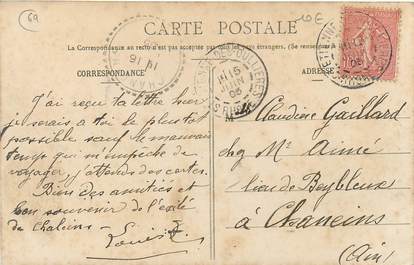 69
10E
CARTE POSTALE
La Correspondance au recto n'est pas acceptée par tous les pays étrangers.
CORRESPONDANCE
ADRESSE
J'ai reçu ta lettre hier
je serais à toi le plus tôt
possible sauf le mauvais
temps qui m'empêche de
voyager j'attends des cartes.
Bien des amitiés et
bon souvenir de l'exilé
de Chaleins -
Louis
Claudière Gaillard
chez Mr Aimé
lieu de
à Chaneins
(Ain)
15
JUIN
06